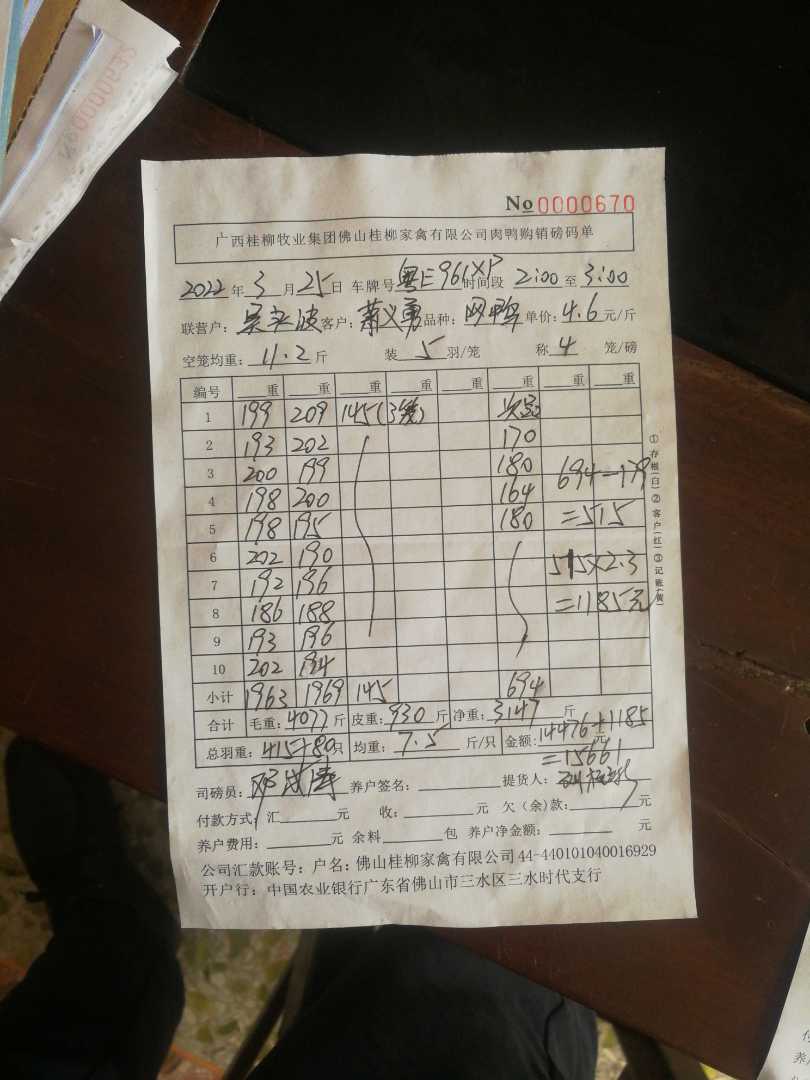 No 0000622
No 0000670
广西桂柳牧业集团佛山桂柳家禽有限公司肉鸭购销磅码单
2022 年 3 月 25 日 车牌号 粤E961XP 时间段 2:00 至 3:00
联营户： 波 客户： 萧义勇 品种： 鸭 单价： 4.6 元/斤
空笼均重： 11.2 斤 装 5 羽/笼 称 4 笼/磅
编号 重 重 重 重 重 重 重 重
1 199 209 145(3笼) 次品
2 193 202 170
3 200 199 180 694-179
4 198 200 164
5 198 195 180 =515
6 202 190 515×2.3
7 192 196
8 186 188 =1185元
9 193 196
10 202 194
小计 1963 1969 145 694
合计 毛重： 4077 斤 皮重： 930 斤 净重： 3147 斤
总羽重： 415+80 只 均重： 7.5 斤/只 金额： 14476+1185 元
=15661
司磅员： 邓 涛 养户签名： 提货人：
付款方式：汇 元 收： 元 欠（余）款： 元
养户费用： 元 余料 包 养户净金额： 元
公司汇款账号：户名：佛山桂柳家禽有限公司 44-440101040016929
开户行：中国农业银行广东省佛山市三水区三水时代支行
①存根(白)②客户(红)③记账(黄)
付
养